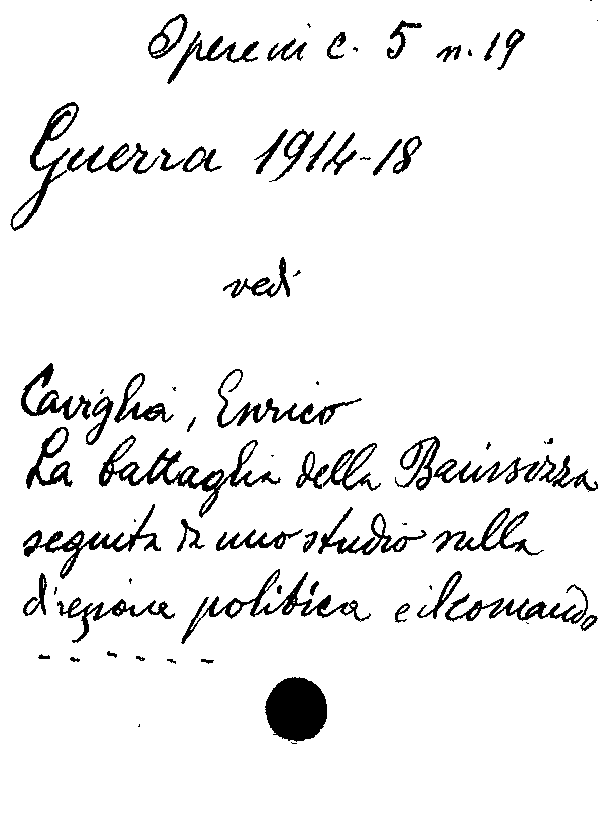 Spere in c. 5 n. 19
Guerra 1914-18
vedi
Caviglia, Enrico
La battaglia della Bainsizza
seguita da uno studio sulla
direzione politica e il comando
- - - - - -